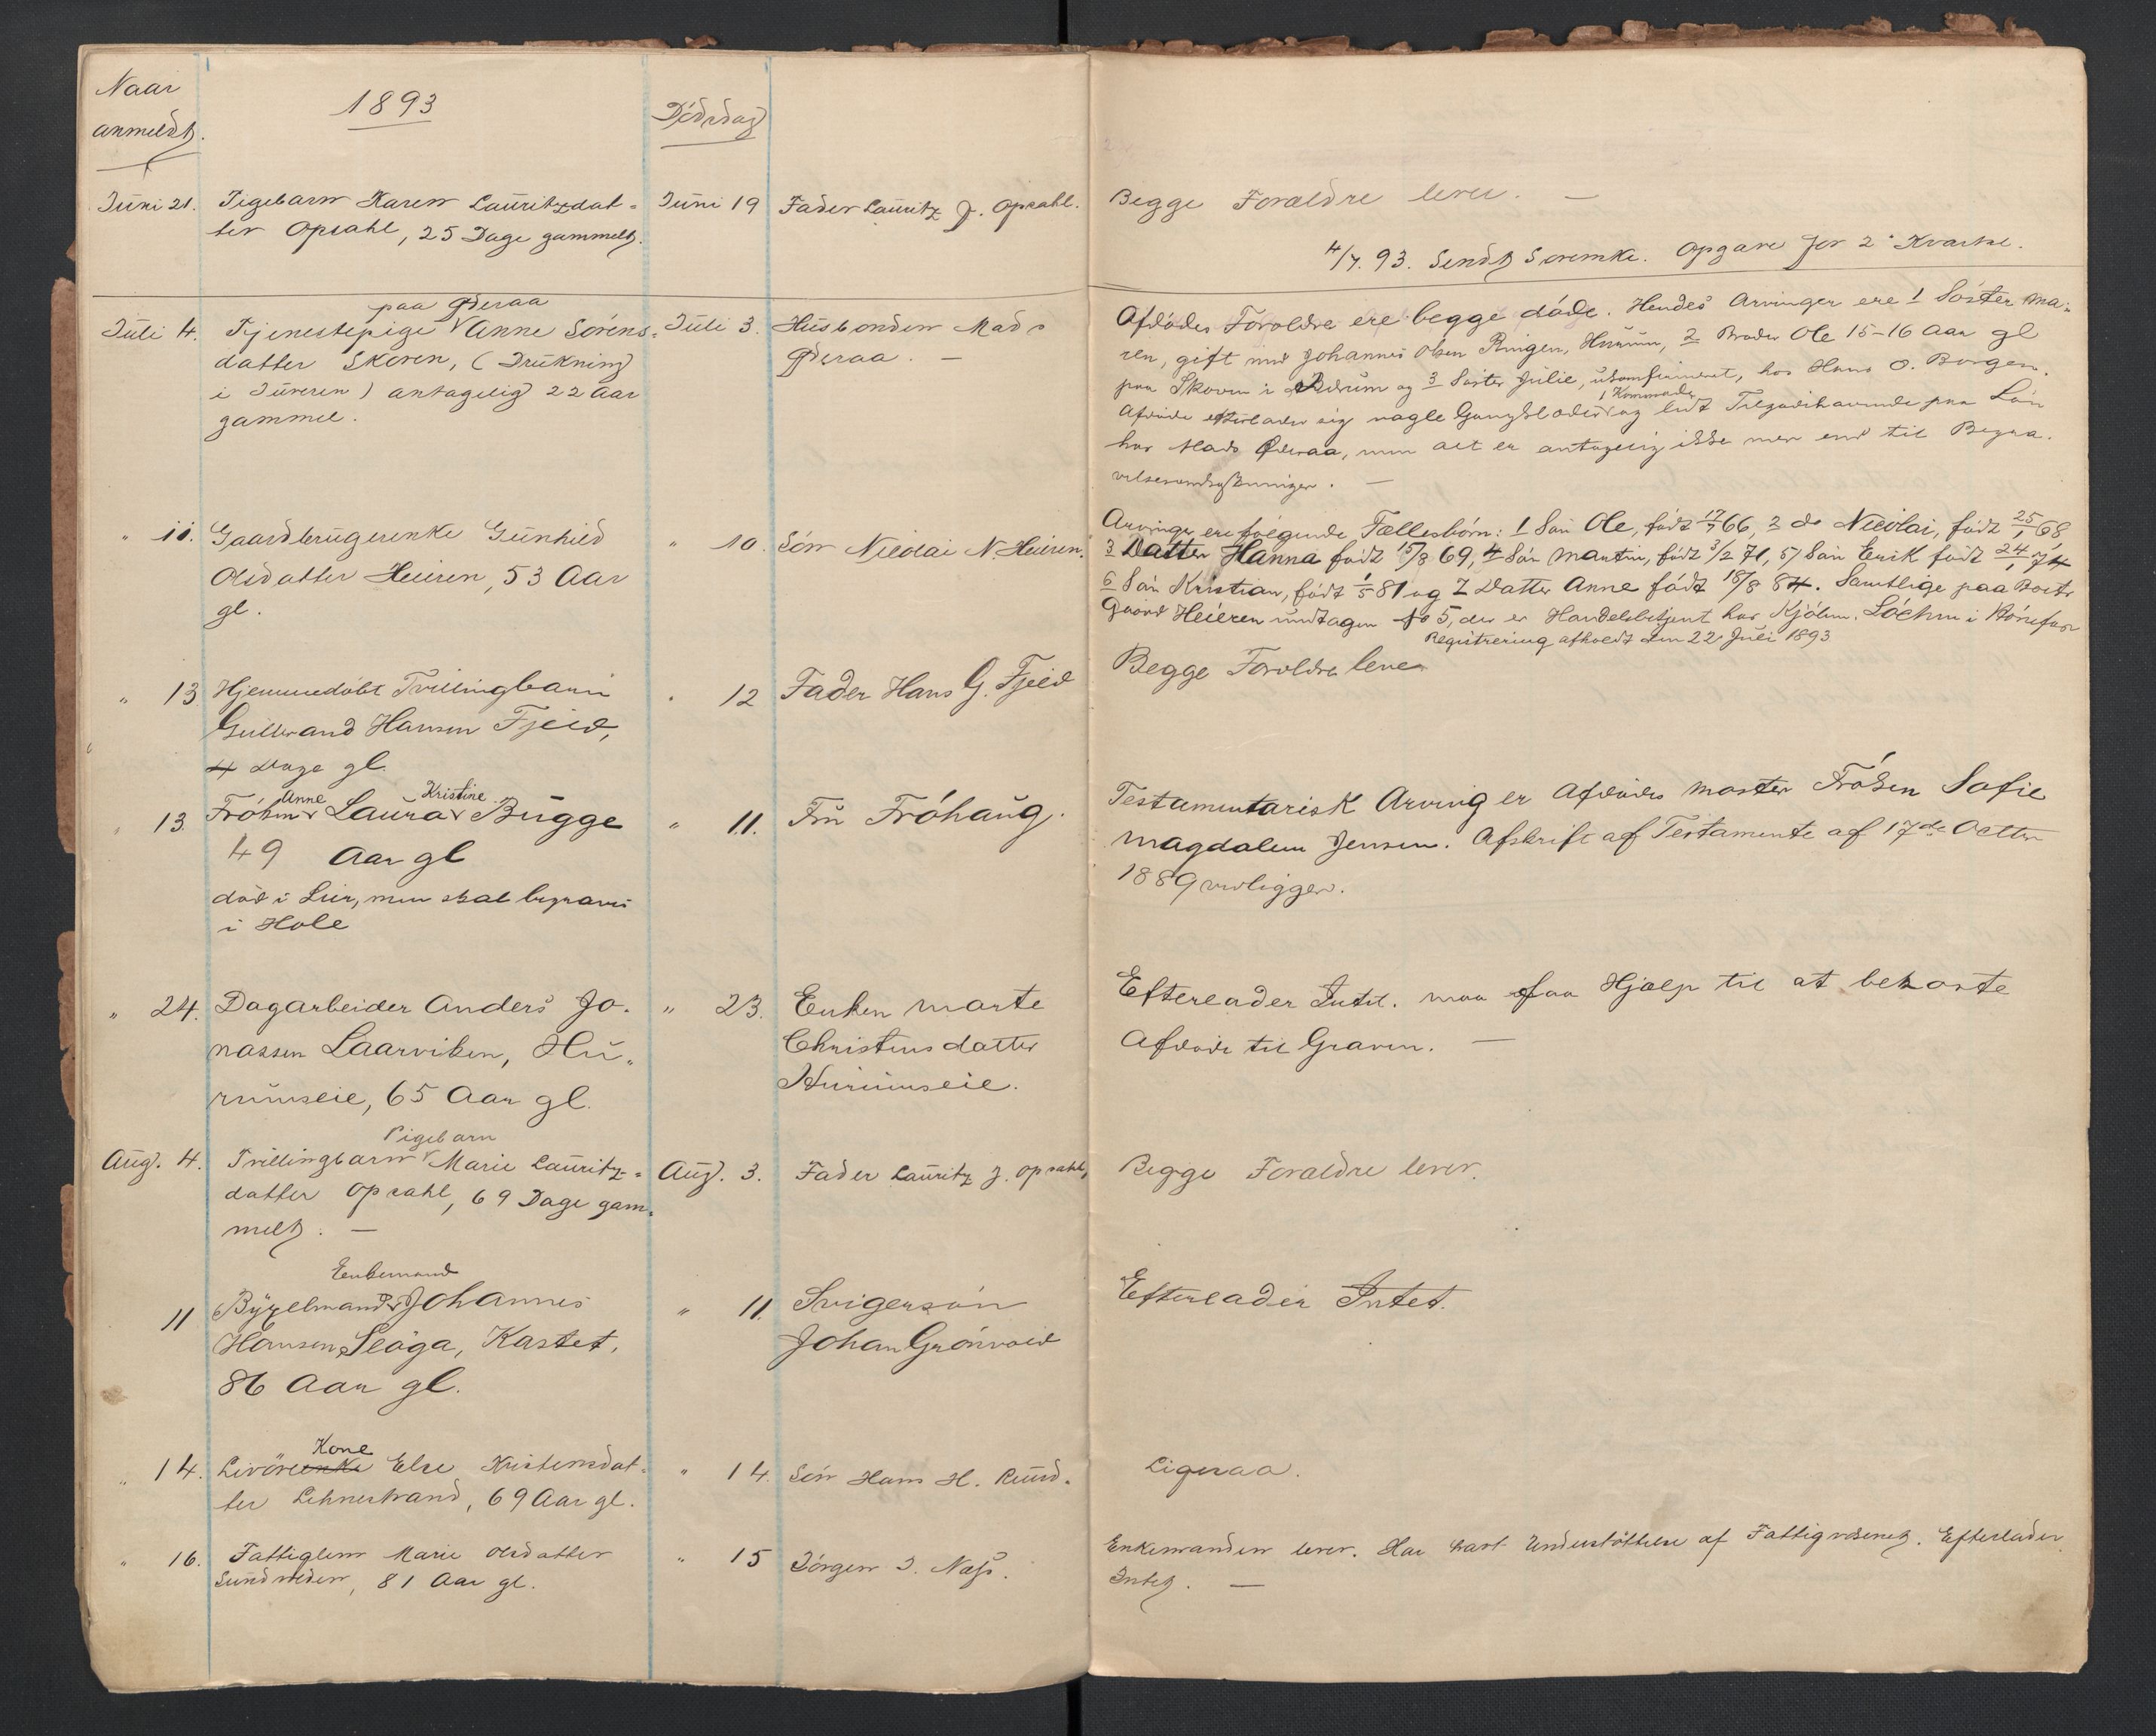 Naar
anmeldt.
1893
Dödsdag
Juni 21.
Pigebarn Karen Lauritzdat-
ter Opsahl, 25 Dage gammelt.
Juni 19
Fader Lauritz J. Opsahl.
Begge Forældre lever. —
4/7. 93. Sendt Sorensk. Opgave for 2' Kvartal.
Juli 4.
paa Øderaa
Tjenestepige Anne Sörens-
datter Skoren, (Drukning
i Juveren) antagelig 22 Aar
gammel.
Juli 3.
Husbonden Mads
Øderaa. —
Afdödes Foroldre ere begge döde. Hendes Arvinger ere 1 Söster Ma-
ren, gift med Johannes Olsen Ringen, Hurum, 2 Broder Ole 15-16 Aar gl
paa Skoven i Bærum og 3 Söster Julie, ukonfirmeret, hos Hans O. Borgen.
1 Kommode
Afdöde efterlader sig nogle Gangklæder og lidt Tilgodehavende paa Lön
hos Mads Øderaa, men alt er antagelig ikke mer end til Begra-
velsesomkostninger. —
" 11.
Gaardbrugerenke Gunhild
Olsdatter Heieren, 53 Aar
gl.
" 10.
Sön Nicolai N. Heieren.
Arvinger ere følgende Fællesbörn: 1 Sön Ole, födt 17/7 66, 2 do Nicolai, födt 25/1 68
3 Datter Hanna födt 15/8 69, 4 Sön Martin, födt 3/2 71, 5) Sön Erik födt 24/1 74
6 Sön Kristian, födt 1/5 81 og 7 Datter Anne födt 18/8 84. Samtlige paa Bosts
Gaard Heieren undtagen No 5, der er Handelsbetjent hos Kjöbm. Löchen i Hönefos
Registrering afholdt den 22 Juli 1893
" 13
Hjemmedöbt Tvillingbarn
Gulbrand Hansen Fjeld,
4 Dage gl.
" 12
Fader Hans G. Fjeld
Begge Foroldre lever
" 13.
Anne Kristine
Fröken Laura Bugge
49 Aar gl
död i Lier, men skal begraves
i Hole
" 11.
Fru Fröhaug.
Testamentarisk Arving er Afdödes Moster Fröken Sofie
Magdalene Jensen. Afskrift af Testamente af 17de Octbr
1889 vedligger.
" 24.
Dagarbeider Anders Jo-
nassen Laarviken, Hu-
rumseie, 65 Aar gl.
" 23.
Enken Marte
Christensdatter
Hurumseie.
Efterlader Intet. Maa faa Hjælp til at bekoste
Afdöde til Graven. —
Aug. 4.
Pigebarn
Tvillingbarn Marie Lauritz-
datter Opsahl, 69 Dage gam-
melt. —
Aug. 3.
Fader Lauritz J. Opsahl,
Begge Forældre lever.
11
Enkemand
Bygselmand Johannes
Hansen Slaga, Kastet,
86 Aar gl.
" 11.
Svigersön
Johan Grönvold
Efterlader Intet.
" 14.
Kone
Livöreenke Else Kristensdat-
ter Lehnestrand, 69 Aar gl.
" 14.
Sön Hans H. Rund.
Ligesaa.
" 16.
Fattiglem Marie Olsdatter
Sundveden, 81 Aar gl.
" 15
Jörgen J. Næss.
Enkemanden lever. Har havt Understöttelse af Fattigvæsenet. Efterlader
Intet. —